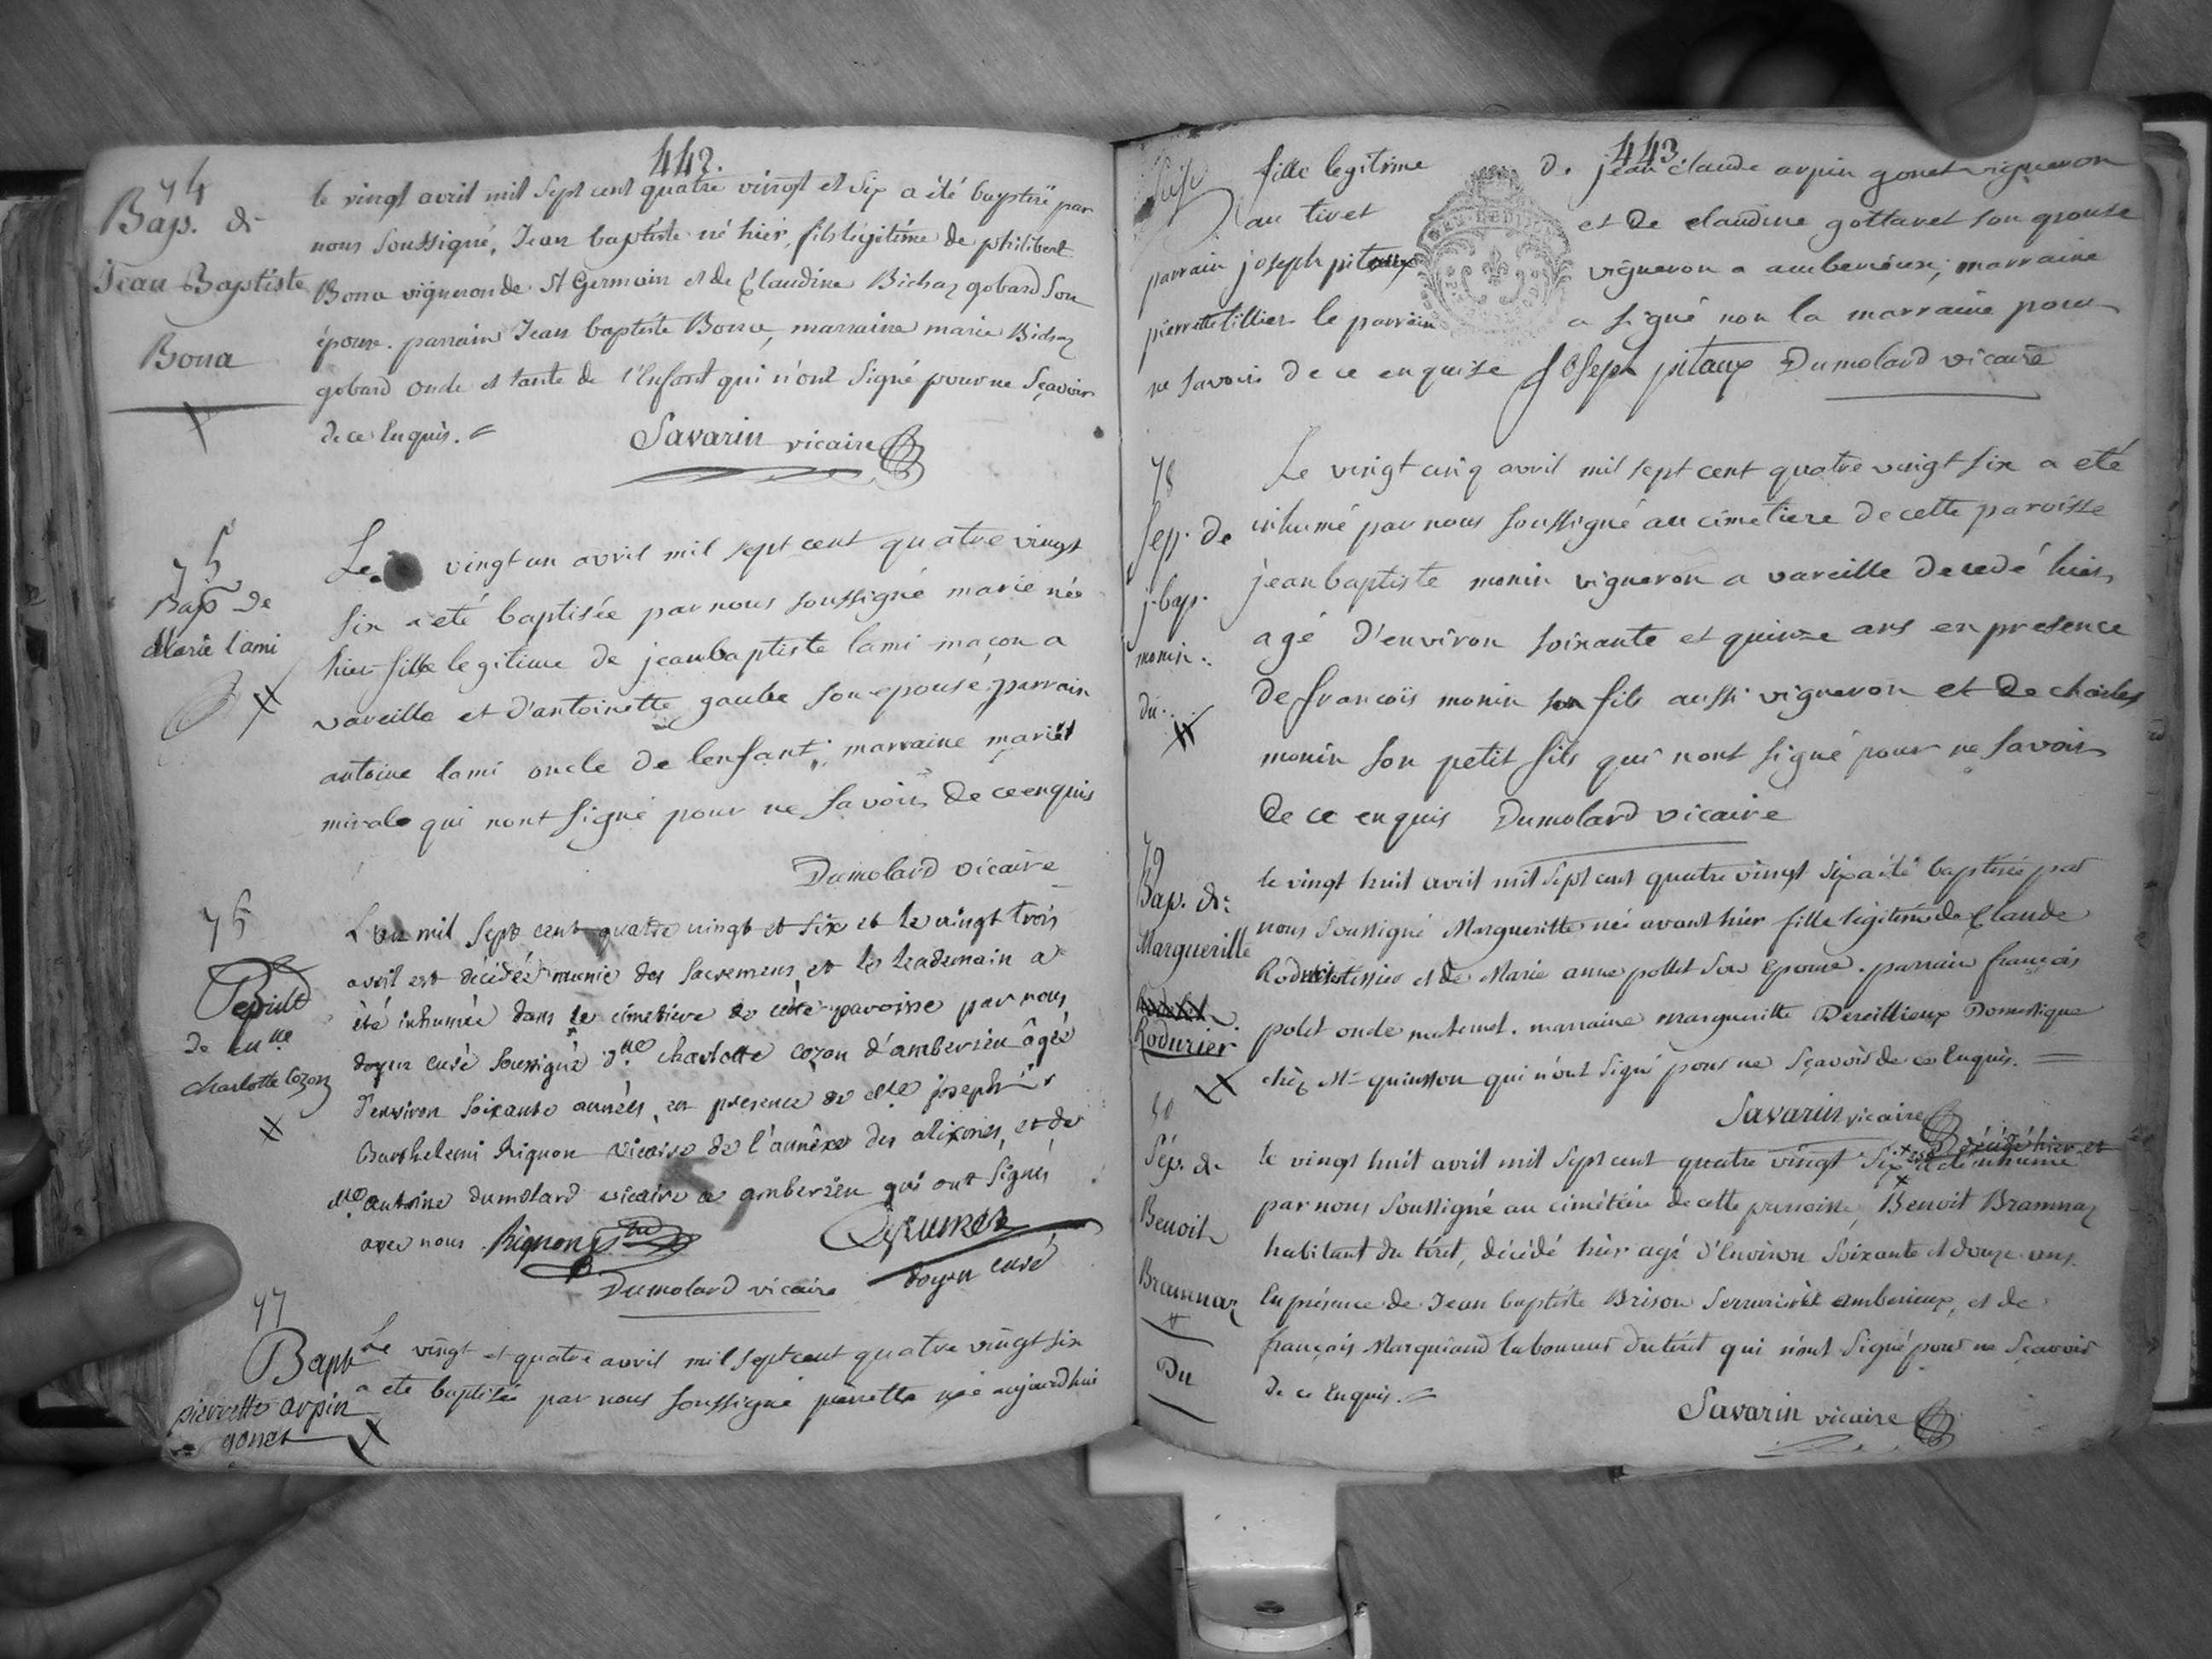 442.
74
Bap. de
Jean Baptiste
Bona
le vingt avril mil sept cent quatre vingt et six a été baptisé par
nous soussigné, Jean baptiste né hier, fils légitime de philibert
Bona vigneron de St Germain et de Claudine Bichaz gobard son
épouse. parrain Jean baptiste Bona, marraine marie Bichaz
gobard oncle et tante de l'Enfant qui n'ont signé pour ne sçavoir
de ce Enquis.
Savarin vicaire
75
Bap de
Marie lami
Le vingt un avril mil sept cent quatre vingt
six a eté baptisée par nous soussigné marie née
hier fille legitime de jeanbaptiste lami maçon a
vareille et d'antoinette gaube son epouse, parrain
antoine lami oncle de lenfant; marraine
mirale qui nont signé pour ne savoir de ce enquis
Dumolard vicaire
76
Sepult
de
charlotte Cozon
L'an mil sept cent quatre vingt et six et le vingt trois
avril est décédée munie des sacremens et le leademain a
été inhumée dans le cimetiere de cette paroisse par nous
doyen curé soussigné charlotte cozon d'amberieu âgée
d'environ soixante années, en presence de joseph
Barthelemi Rignon vicaire de l'annéxe des alixmes, et de
antoine dumolard vicaire a amberieu qui ont signés
avec nous Rignon
Dumolard vicaire doyen curé
77
Bapt
pierrette arpin
gonet
Le vingt et quatre avril mil sept cent quatre vingt six
a eté baptisée par nous soussigné pierrette née aujourdhui
443
fille legitime de jean claude arpin gonet vigneron
au tiret et de claudine gottaret son epouse
parrain joseph pitaux vigneron a amberieux; marraine
pierrette tillier le parrain a signé non la marraine pour
ne savoir de ce enquise joseph pitaux Dumolard vicaire
78
Sep. de
j. bap.
monin.
du
Le vingt cinq avril mil sept cent quatre vingt six a eté
inhumé par nous soussigné au cimetiere de cette paroisse
jeanbaptiste monin vigneron a vareille decedé hier
agé d'environ soixante et quinze ans en presence
de françois monin son fils aussi vigneron et de charles
monin son petit fils qui nont signé pour ne savoir
de ce enquis Dumolard vicaire
79
Bap. de
Margueritte
Rodurier
le vingt huit avril mil sept cent quatre vingt six a été baptisée par
nous soussigné Margueritte née avant hier fille légitime de Claude
et de Marie anne pollet son Epouse. parrain françois
polet oncle maternel. marraine margueritte Dereillieux Domestique
chéz Mr quinsson qui n'ont signé pour ne sçavoir de ce Enquis.
Savarin vicaire
80
Sép. de
Benoit
Bramnaz
Du
le vingt huit avril mil sept cent quatre vingt six a été inhumé
par nous soussigné au cimétière de cette parroisse, Benoit Bramnaz
habitant du tiret, décédé hier agé d'Environ soixante et douze ans.
En présence de Jean baptiste Brison serrurier amberieux, et de
françois Marquiand laboureur du tirét qui n'ont signé pour ne sçavoir
de ce Enquis.
Savarin vicaire